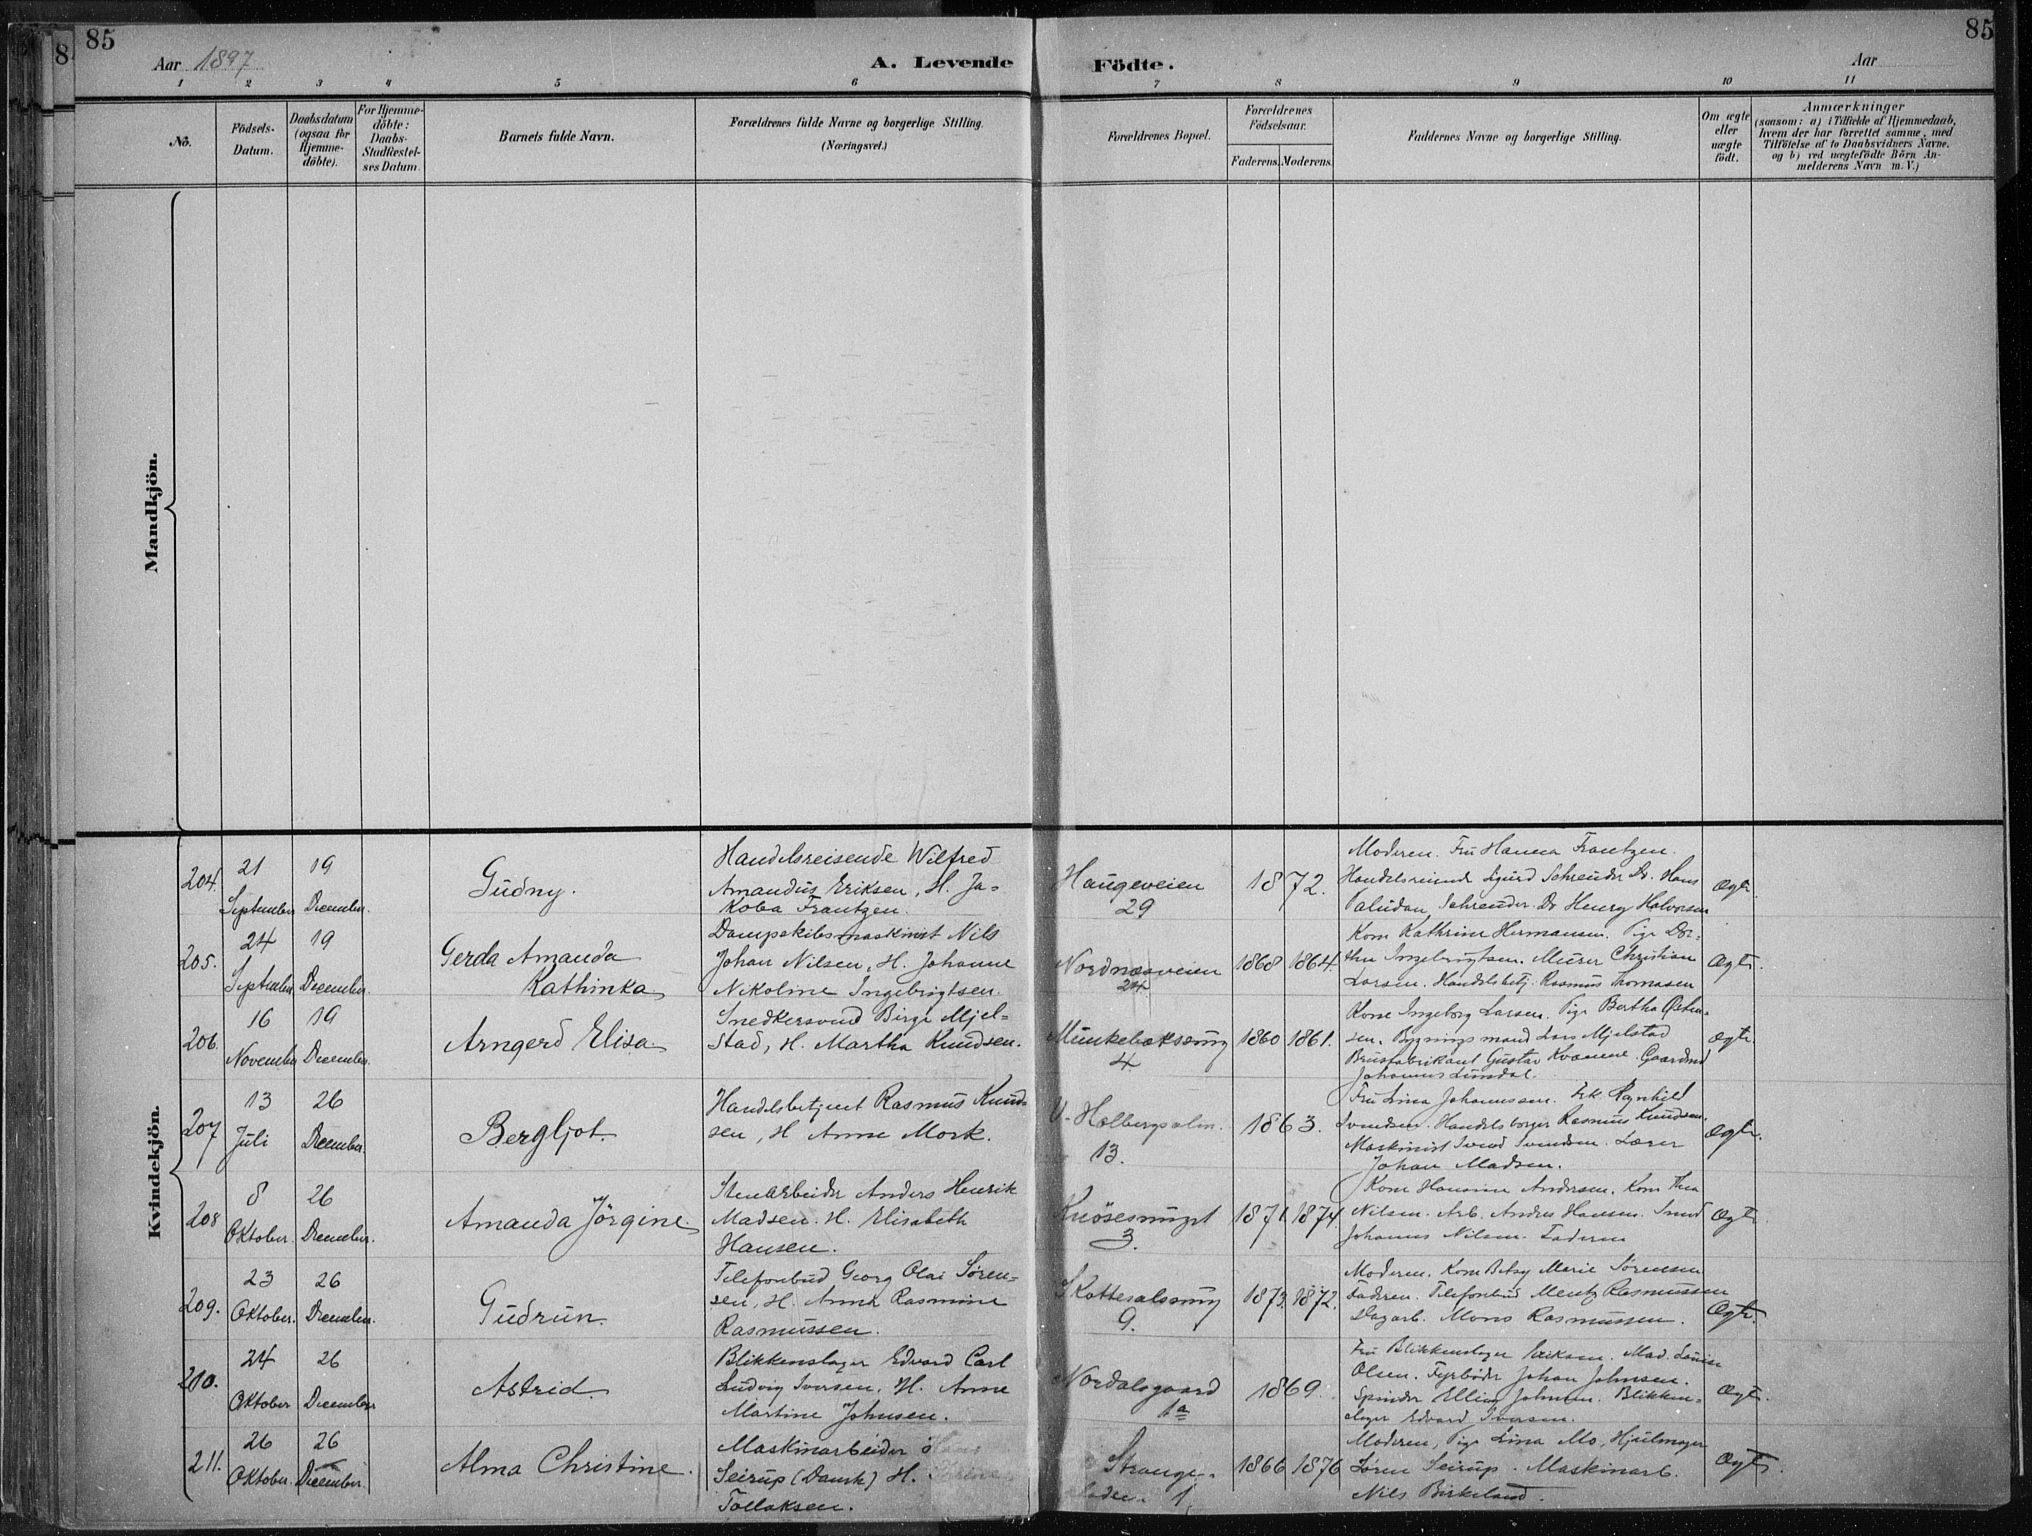 85
85
8
Aar 1897
A. Levende
Födte.
Aar
1 2 3 4 5 6 7 8 9 10 11
No.
Födsels-
Datum.
Daabsdatum
(ogsaa for
Hjemme-
döbte).
For Hjemme-
döbte:
Daabs-
Stadfæstel-
ses Datum.
Barnets fulde Navn.
Forældrenes fulde Navne og borgerlige Stilling.
(Næringsvei.)
Forældrenes Bopæl.
Forældrenes
Födselsaar.
Faderens. Moderens.
Faddernes Navne og borgerlige Stilling.
Om ægte
eller
uægte
født.
Anmærkninger
(saasom: a) i Tilfælde af Hjemmedaab,
hvem der har forrettet samme, med
Tilföielse af to Daabsvidners Navne.
og b) ved uægtefödte Börn An-
melderens Navn m. V.)
Mandkjön.
Kvindekjön.
204.
21
September
19
December.
Gudny.
Handelsreisende Wilfred
Amandus Eriksen, H. Ja-
koba Frantzen.
Haugeveien
29
1872.
Moderen. Fru Hanna Frantzen.
Handelsreisende Sigurd Schreuder Do. Hans
Paludan Schreuder. Do Henry Halvorsen
Ægte
205.
24
September
19
December.
Gerda Amanda
Kathinka
Dampskibsmaskinist Nils
Johan Nilsen, H. Johanne
Nikoline Ingebrigtsen.
Nordnæsveien
24
1868 1864.
Kone Kathrine Hermansen. Pige Dor-
thea Ingebrigtsen. Murer Christian
Larsen. Handelsbetj. Rasmus Thomasen
Ægte.
206.
16
November
19
December.
Arngerd Elisa.
Snedkersvend Birge Mjel-
stad, H. Martha Knudsen.
Munkebæksmug
4
1860 1861.
Kone Ingeborg Larsen. Pige Bertha
sen. Bygningsmand Lars Mjelstad
Brusfabrikant Gustav Kvamme. Gaardmd
Johannes
Ægte.
207
13
Juli
26
December.
Bergljot.
Handelsbetjent Rasmus Knud-
sen, H Anne Mork.
V. Holbergsalm.
13.
1863.
Fru Lina Johannesen. Frk Ragnhild
Svendsen. Handelsborger Rasmus Knudsen.
Maskinist Svend Svendsen. Lærer
Johan Madsen.
Ægte.
208
8
Oktober.
26
December.
Amanda Jörgine
Stenarbeider Anders Henrik
Madsen. H. Elisabeth
Hansen.
Knösesmuget
3.
1871 1874.
Kone Hansine Andersen. Kone Thea
Nilsen. Arb. Andreas Hansen. Smed
Johannes Nilsen. Faderen
Ægte.
209.
23
Oktober.
26
December.
Gudrun.
Telefonbud Georg Olai Sören-
sen, H. Anna Rasmine
Rasmussen.
Skottesalssmug
9.
1873. 1872.
Moderen. Kone Betsy Marie Sørensen
Faderen. Telefonbud Mentz Rasmussen
Dagarb. Mons Rasmussen.
Ægte.
210.
24
Oktober
26
December
Astrid.
Blikkenslager Edvard Carl
Ludvig Iversen. H. Anne
Martine Johnsen.
Nordalsgaard
1a
1869.
Fru Blikkenslager Eriksen. Mad. Louise
Olsen. Fyrbøder Johan Johnsen.
Spinder Elling Johnsen. Blikken-
slager Edvard Iversen.
Ægte.
211.
26
Oktober.
26
December
Alma Christine.
Maskinarbeider
Seirup (Dansk) H.
Tollaksen.
Strange-
1
1866 1876
Moderen, Pige Lina Mo, Hjulmager
Søren Seirup. Maskinarb.
Nils Birkeland.
Ægte.